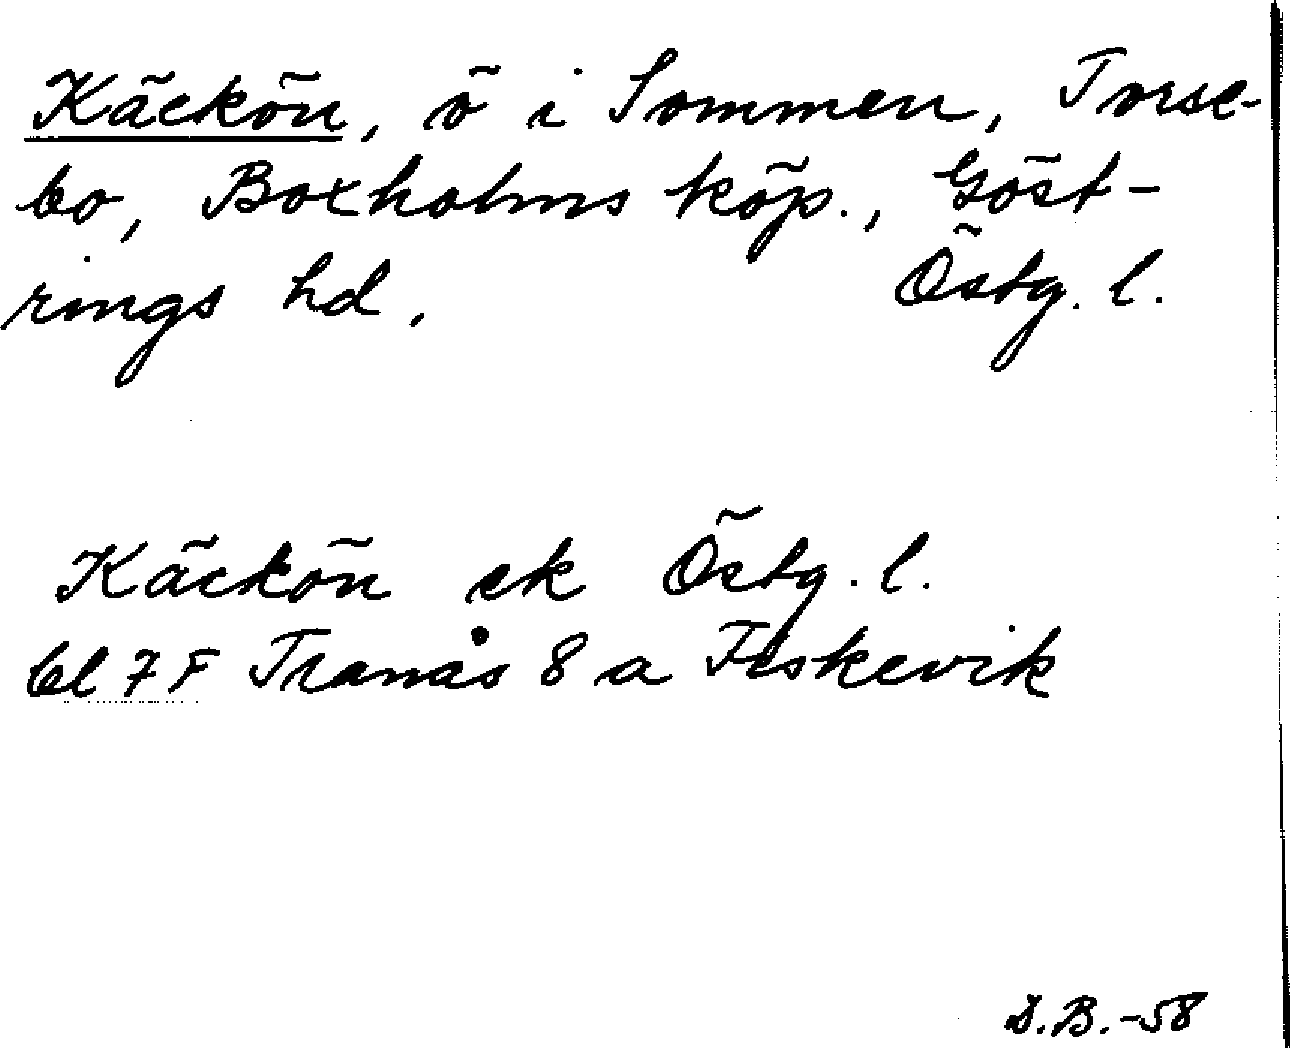 Käckön, ö i Sommen, Torse-
bo, Boxholms köp., Göst-
rings hd. Östg. l.
Käckön ek Östg. l.
bl 7 F Tranås 8 a Fiskevik
D.B.-58